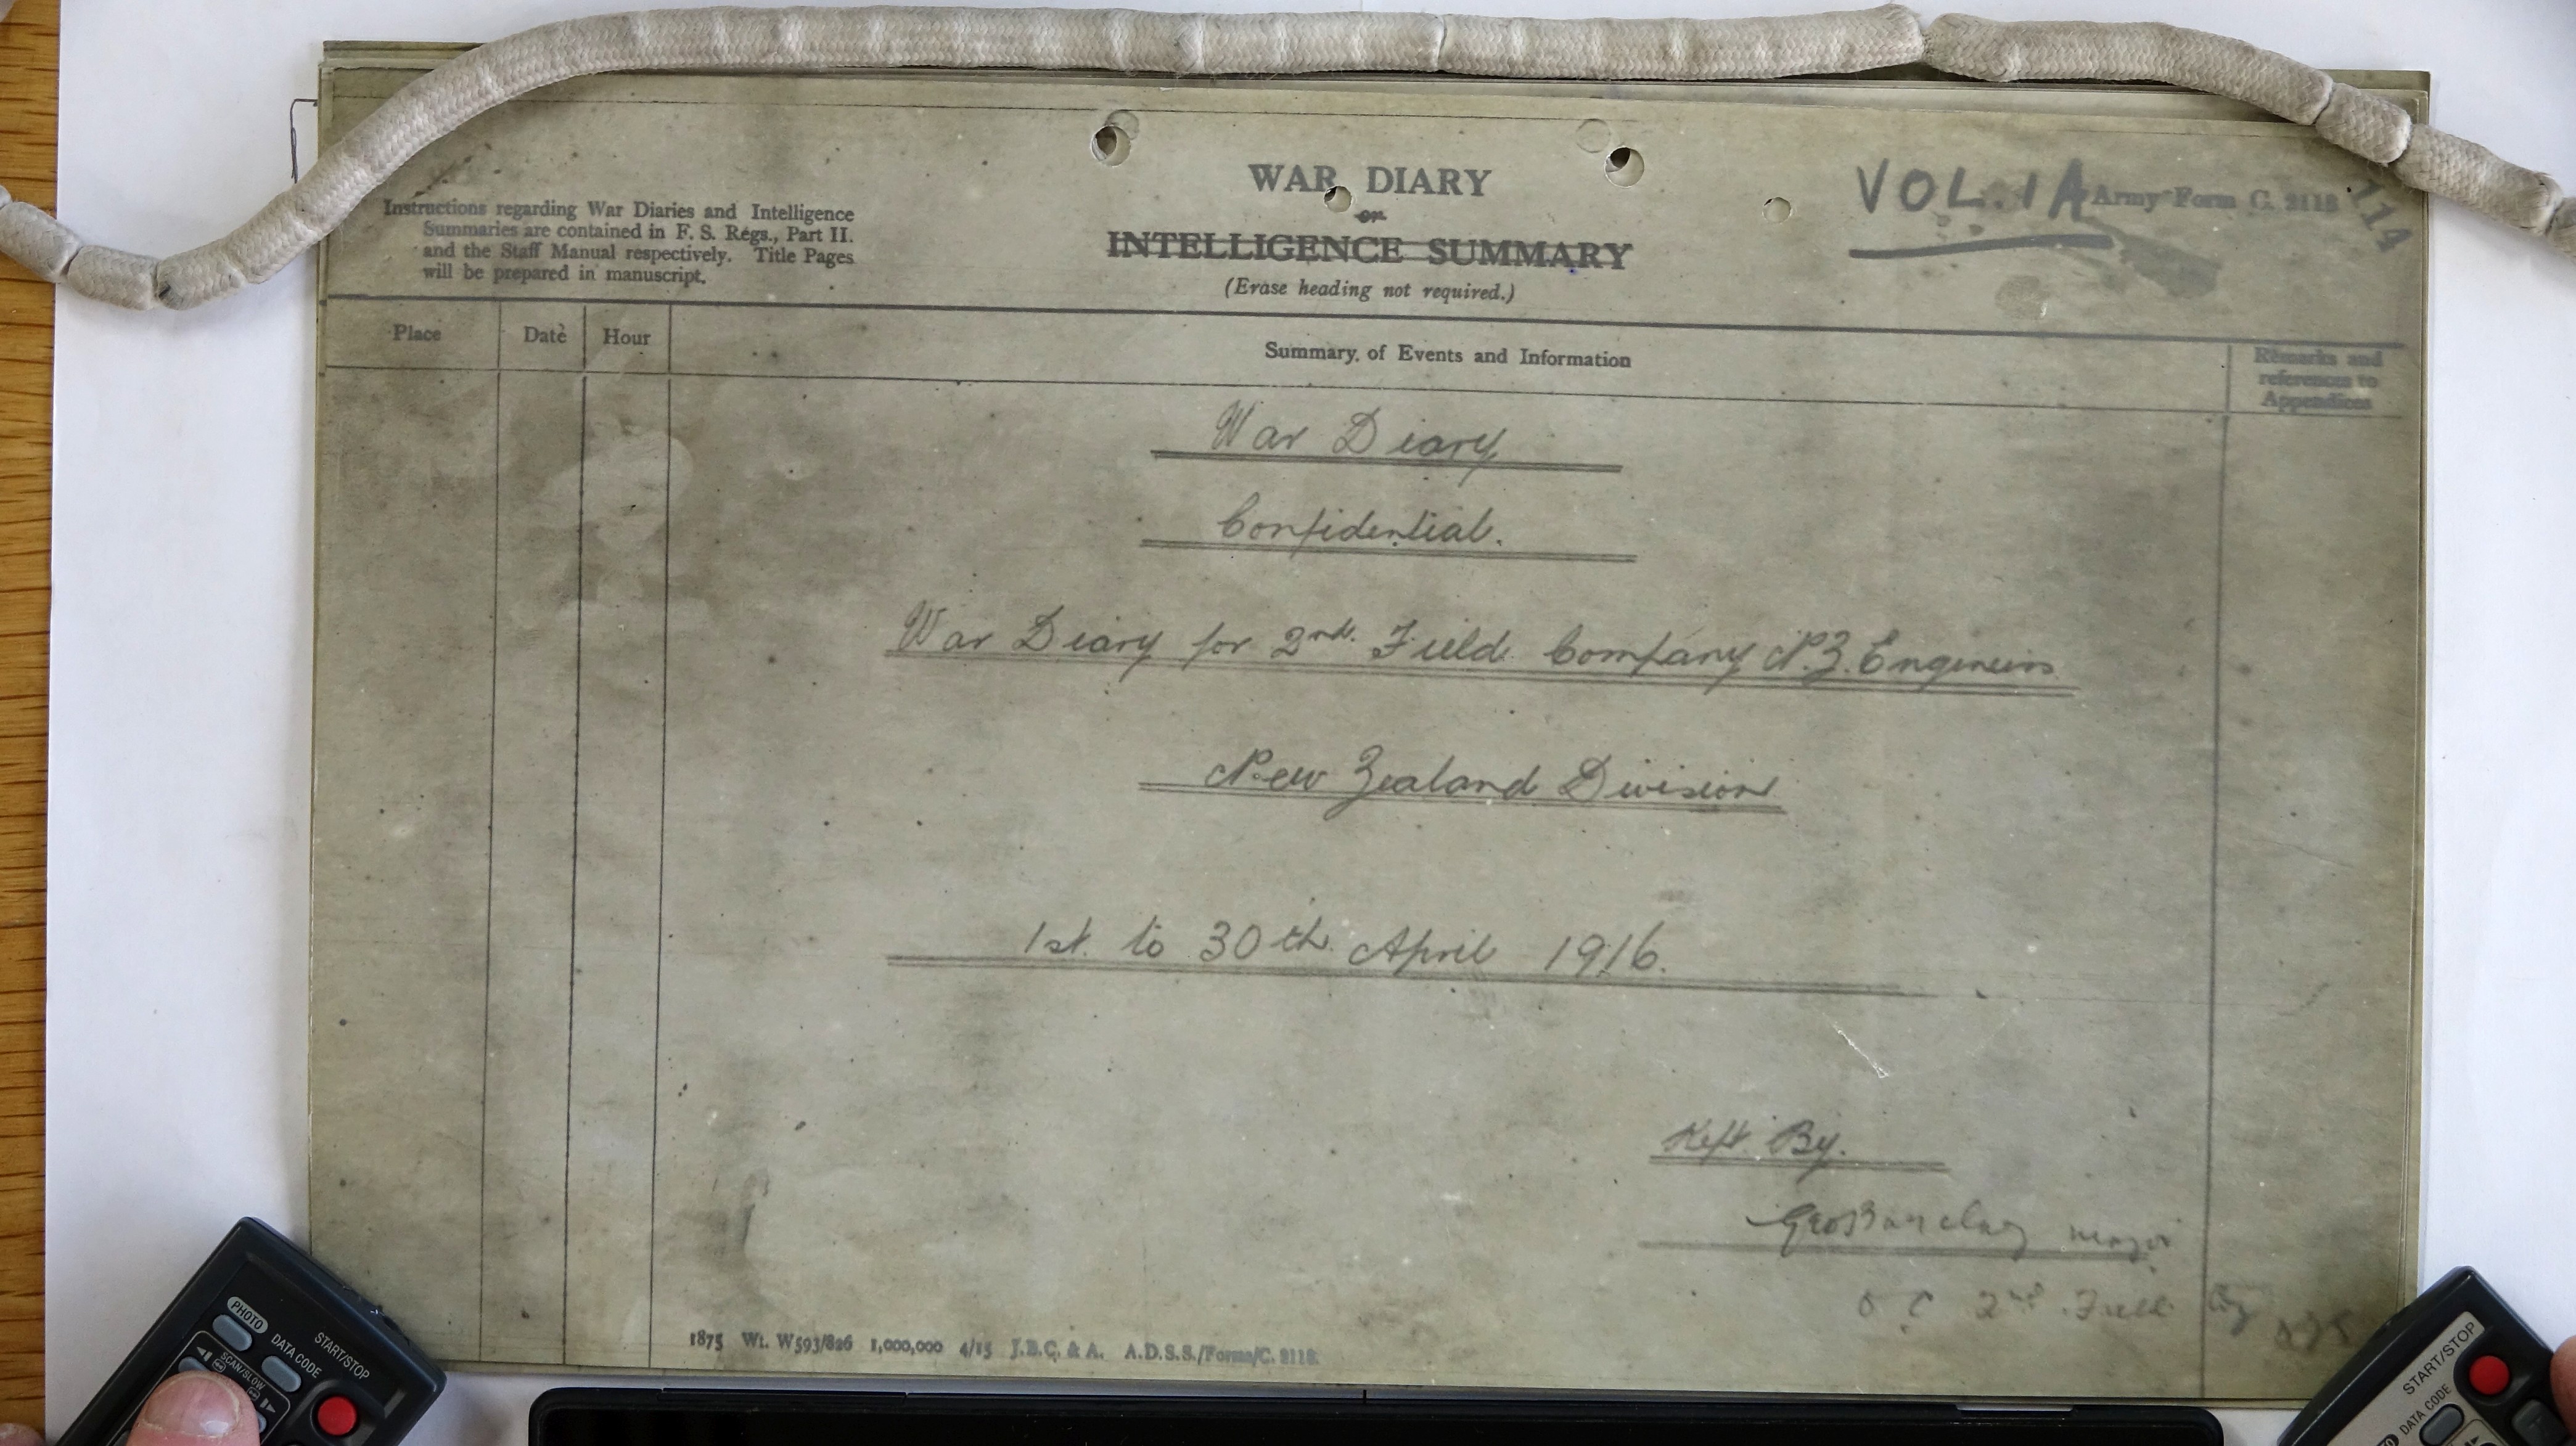 WAR DIARY
or
INTELLIGENCE SUMMARY
(Erase heading not required.)
Instructions regarding War Diaries and Intelligence
Summaries are contained in F. S. Regs., Part II.
and the Staff Manual respectively. Title Pages
will be prepared in manuscript.
VOL. 1A
Army Form C. 2118
114
Place
Date
Hour
Summary of Events and Information
Remarks and
references to
Appendices
War Diary
Confidential.
War Diary for 2nd. Field Company N.Z. Engineers
New Zealand Division
1st. to 30th April 1916.
Kept By.
Geo Barclay major
O C 2nd Field Coy
1875 Wt. W593/826 1,000,000 4/15 J.B.C. & A. A.D.S.S./Forms/C. 2118.
PHOTO
DATA CODE
START/STOP
SCAN/SLOW
START/STOP
DATA CODE